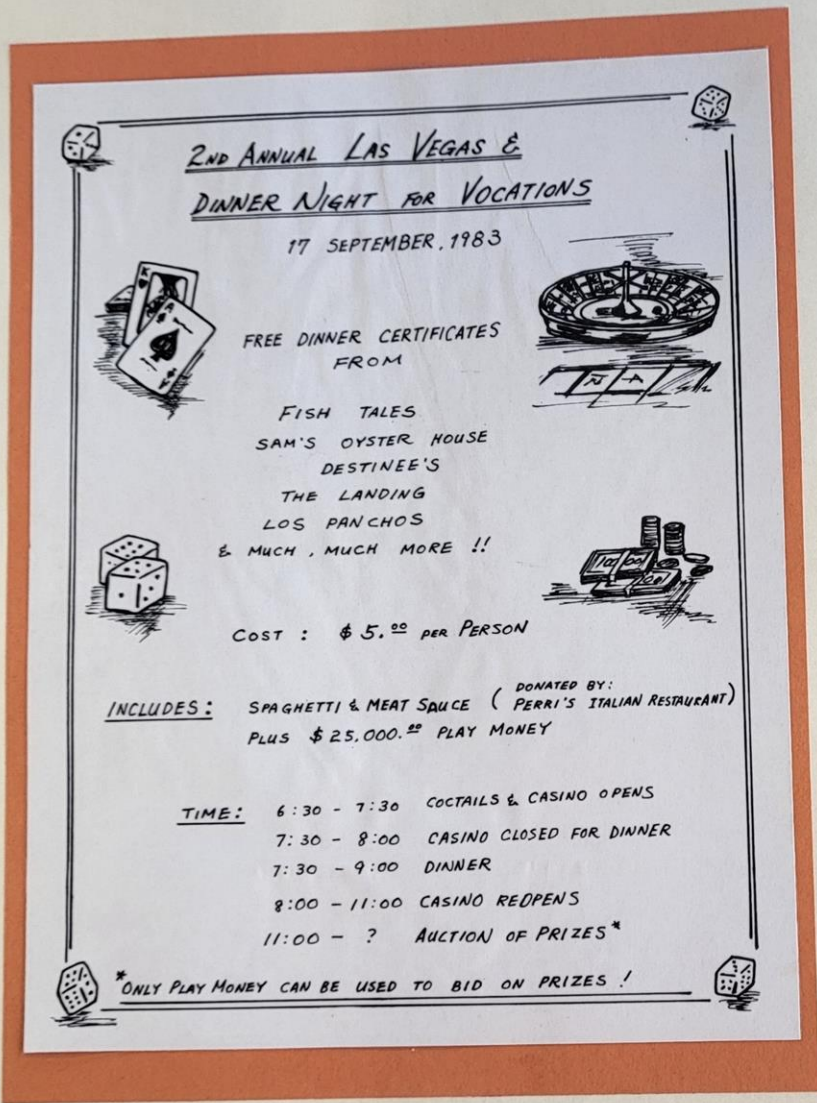 2ND ANNUAL LAS VEGAS &
DINNER NIGHT FOR VOCATIONS
17 SEPTEMBER, 1983
FREE DINNER CERTIFICATES
FROM
FISH TALES
SAM'S OYSTER HOUSE
DESTINEE'S
THE LANDING
LOS PANCHOS
& MUCH, MUCH MORE !!
COST : $5.00 PER PERSON
INCLUDES: SPAGHETTI & MEAT SAUCE (DONATED BY: PERRI'S ITALIAN RESTAURANT)
PLUS $25,000.00 PLAY MONEY
TIME: 6:30 - 7:30 COCTAILS & CASINO OPENS
7:30 - 8:00 CASINO CLOSED FOR DINNER
7:30 - 9:00 DINNER
8:00 - 11:00 CASINO REOPENS
11:00 - ? AUCTION OF PRIZES*
*ONLY PLAY MONEY CAN BE USED TO BID ON PRIZES !